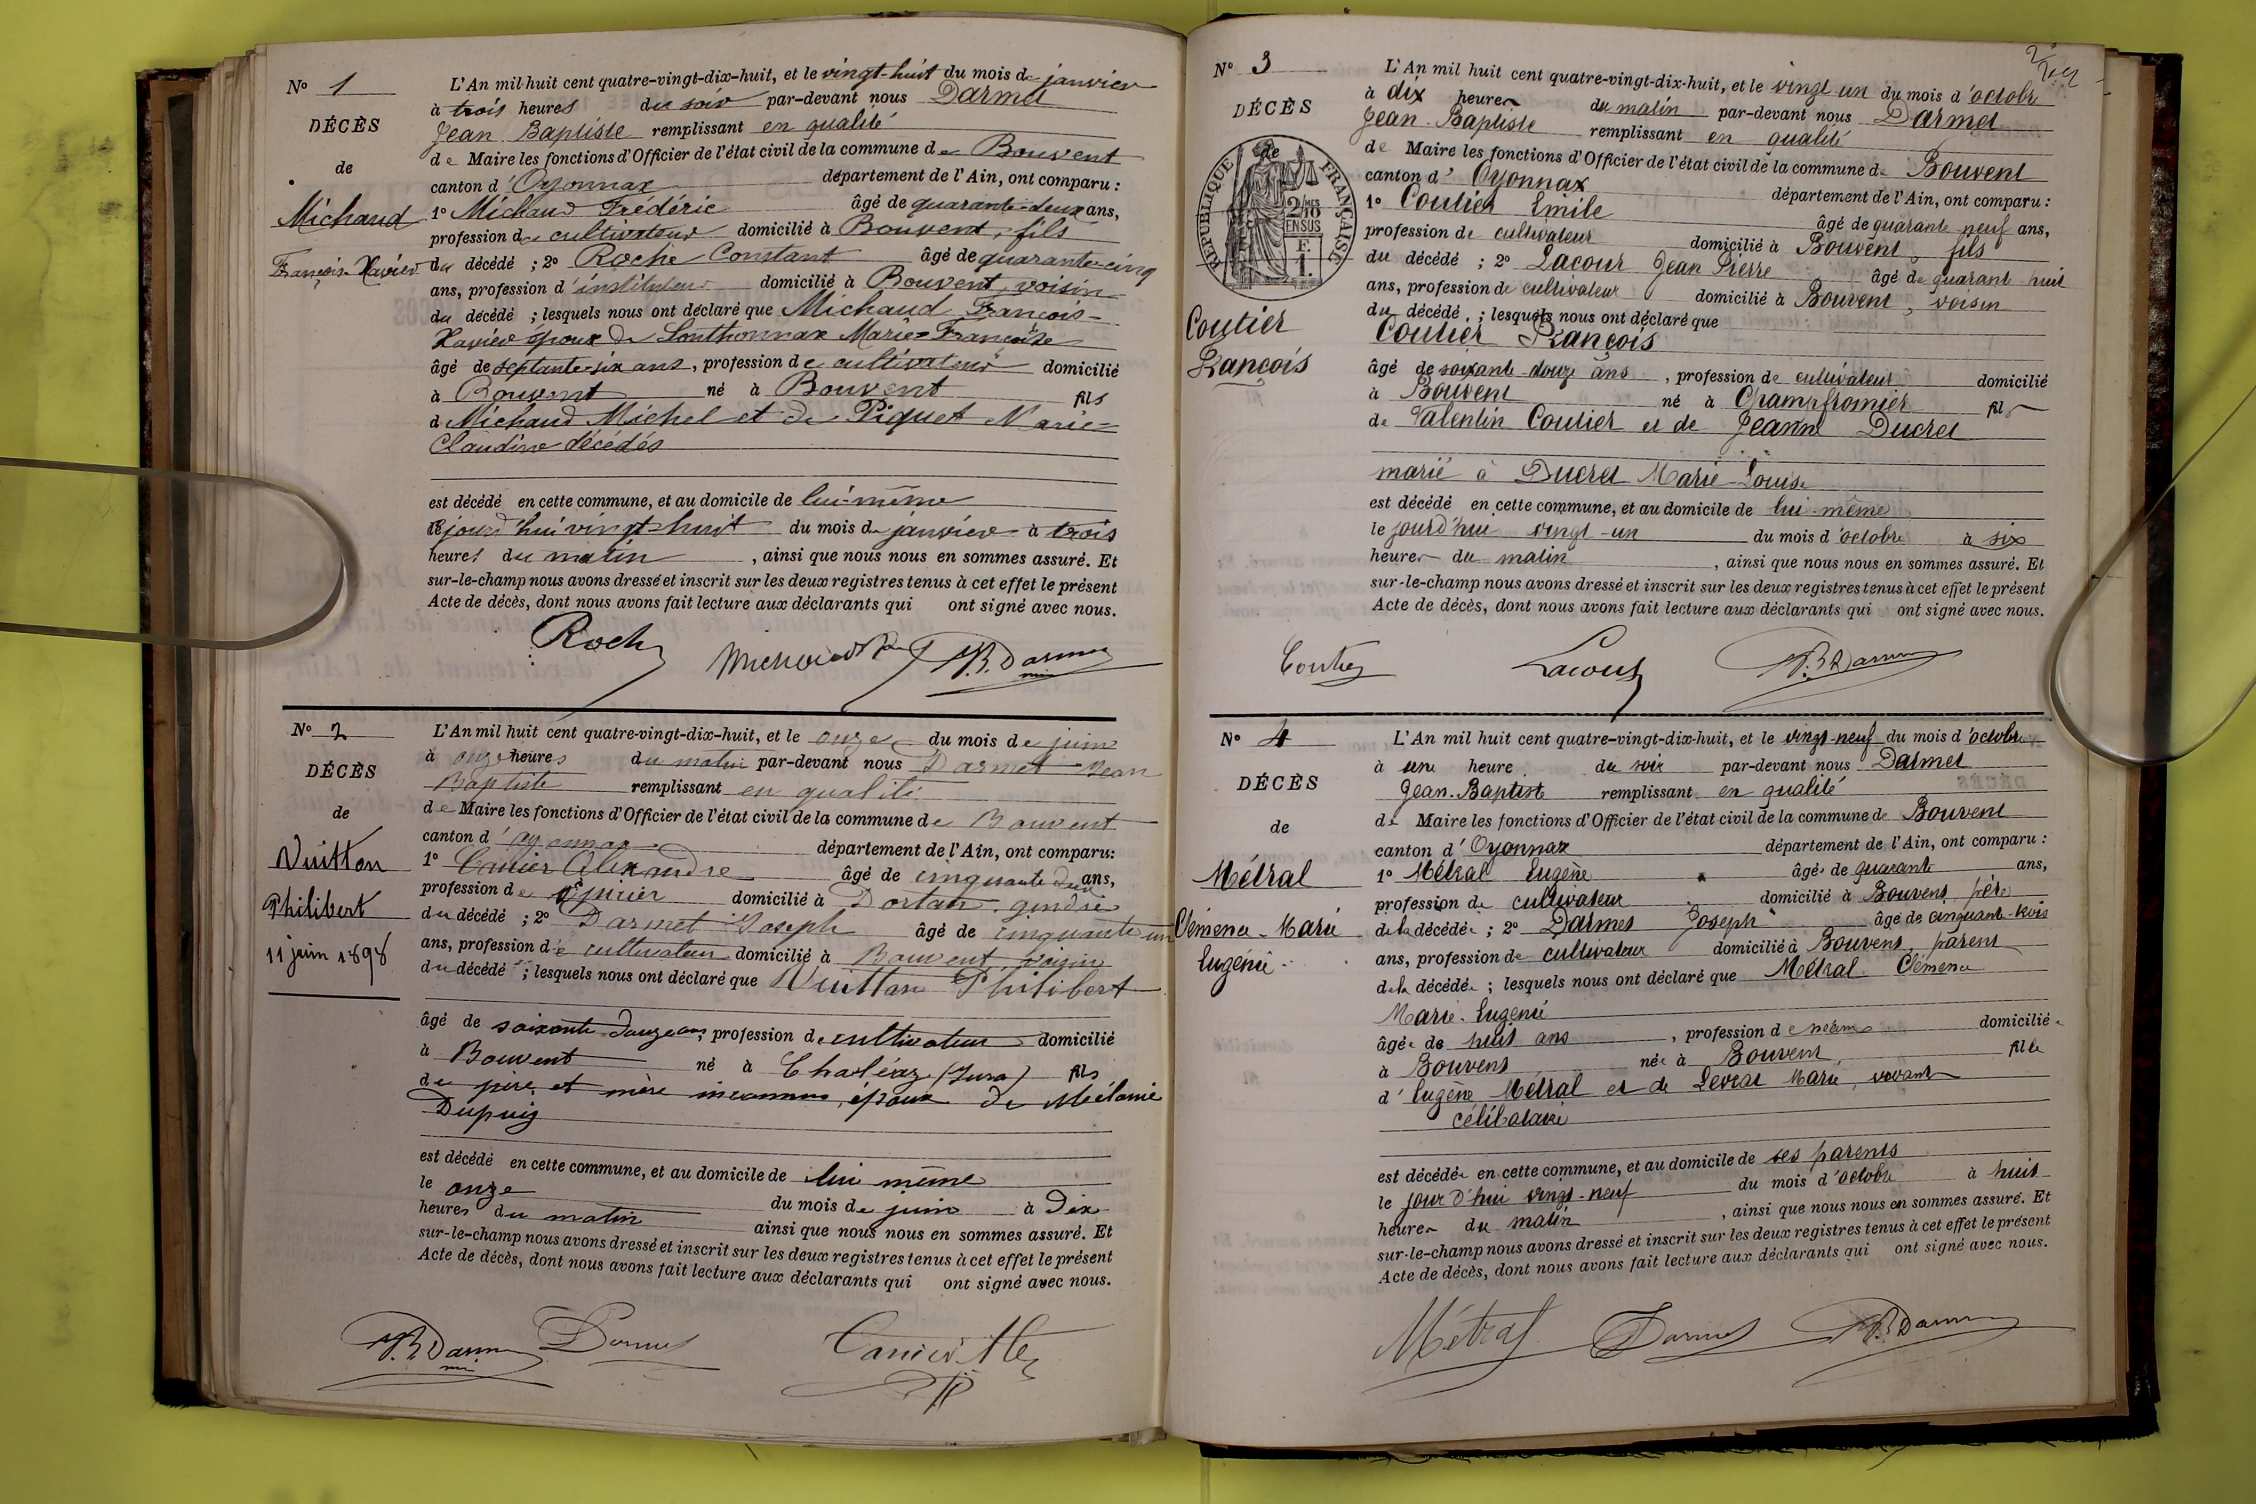 N° 1
DÉCÈS
de
Michaud
François-Xavier
L'An mil huit cent quatre-vingt-dix-huit, et le vingt-huit du mois de janvier
à trois heures du soir par-devant nous Darmet
Jean Baptiste remplissant en qualité
de Maire les fonctions d'Officier de l'état civil de la commune de Bouvent
canton d'Oyonnax département de l'Ain, ont comparu :
1° Michaud Frédéric âgé de quarante-deux ans,
profession de cultivateur domicilié à Bouvent, fils
du décédé ; 2° Roche Constant âgé de quarante-cinq
ans, profession d'instituteur domicilié à Bouvent, voisin
du décédé ; lesquels nous ont déclaré que Michaud François-
Xavier époux de Louthonnax Marie-Françoise
âgé de septante-six ans, profession de cultivateur domicilié
à Bouvent né à Bouvent fils
d Michaud Michel et de Piquet Marie-
Claudine décédés
est décédé en cette commune, et au domicile de lui-même
le jourd'hui vingt-huit du mois de janvier à trois
heures du matin, ainsi que nous nous en sommes assuré. Et
sur-le-champ nous avons dressé et inscrit sur les deux registres tenus à cet effet le présent
Acte de décès, dont nous avons fait lecture aux déclarants qui ont signé avec nous.
Roche J.B. Darmet
N° 2
DÉCÈS
de
Vuitton
Philibert
11 juin 1898
L'An mil huit cent quatre-vingt-dix-huit, et le onze du mois de juin
à onze heures du matin par-devant nous Darmet Jean
Baptiste remplissant en qualité
de Maire les fonctions d'Officier de l'état civil de la commune de Bouvent
canton d'oyonnax département de l'Ain, ont comparu:
1° Alexandre âgé de cinquante deux ans,
profession d épicier domicilié à Dortan, gendre
du décédé ; 2° Darmet Joseph âgé de cinquante un
ans, profession de cultivateur domicilié à Bouvent voisin
du décédé ; lesquels nous ont déclaré que Vuitton Philibert
âgé de soixante-douze ans, profession de cultivateur domicilié
à Bouvent né à Charléaz (Jura) fils
de père et mère inconnus, époux de Mélanie
Dupuis
est décédé en cette commune, et au domicile de lui même
le onze du mois de juin à Dix
heures du matin ainsi que nous nous en sommes assuré. Et
sur-le-champ nous avons dressé et inscrit sur les deux registres tenus à cet effet le présent
Acte de décès, dont nous avons fait lecture aux déclarants qui ont signé avec nous.
J.B. Darmet Darmet
N° 3
DÉCÈS
de
RÉPUBLIQUE FRANÇAISE
2/10MES
EN SUS
F.
1.
Coutier
François
L'An mil huit cent quatre-vingt-dix-huit, et le vingt-un du mois d'octobre
à dix heures du matin par-devant nous Darmet
Jean-Baptiste remplissant en qualité
de Maire les fonctions d'Officier de l'état civil de la commune de Bouvent
canton d'Oyonnax département de l'Ain, ont comparu :
1° Coutier Emile âgé de quarante neuf ans,
profession de cultivateur domicilié à Bouvent, fils
du décédé ; 2° Lacour Jean Pierre âgé de quarante huit
ans, profession de cultivateur domicilié à Bouvent, voisin
du décédé ; lesquels nous ont déclaré que
Coutier François
âgé de soixante-douze ans, profession de cultivateur domicilié
à Bouvent né à Champfromier fils
de Valentin Coutier et de Jeanne Ducret
marié à Ducret Marie-Louise
est décédé en cette commune, et au domicile de lui-même
le jourd'hui vingt-un du mois d'octobre à six
heures du matin, ainsi que nous nous en sommes assuré. Et
sur-le-champ nous avons dressé et inscrit sur les deux registres tenus à cet effet le présent
Acte de décès, dont nous avons fait lecture aux déclarants qui ont signé avec nous.
Coutier Lacour J.B. Darmet
N° 4
DÉCÈS
de
Métral
Clémence-Marie
Eugénie
L'An mil huit cent quatre-vingt-dix-huit, et le vingt-neuf du mois d'octobre
à une heure du soir par-devant nous Darmet
Jean-Baptiste remplissant en qualité
de Maire les fonctions d'Officier de l'état civil de la commune de Bouvent
canton d'Oyonnax département de l'Ain, ont comparu :
1° Métral Eugène âgé de quarante ans,
profession de cultivateur domicilié à Bouvent, père
de la décédée ; 2° Darmet Joseph âgé de cinquante-trois
ans, profession de cultivateur domicilié à Bouvent, parent
de la décédée ; lesquels nous ont déclaré que Métral Clémence
Marie-Eugénie
âgée de huit ans, profession de néant domiciliée
à Bouvent née à Bouvent fille
d'Eugène Métral et de Levrat Marie, vivants
célibataire
est décédée en cette commune, et au domicile de ses parents
le jour d'hui vingt-neuf du mois d'octobre à huit
heures du matin, ainsi que nous nous en sommes assuré. Et
sur-le-champ nous avons dressé et inscrit sur les deux registres tenus à cet effet le présent
Acte de décès, dont nous avons fait lecture aux déclarants qui ont signé avec nous.
Métral Darmet J.B. Darmet